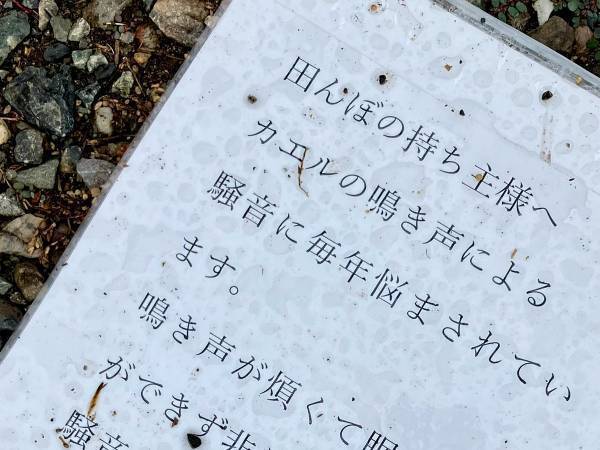 田んぼの持ち主様へ
カエルの鳴き声による
騒音に毎年悩まされてい
ます。
鳴き声が煩くて眠
ができず非
騒音